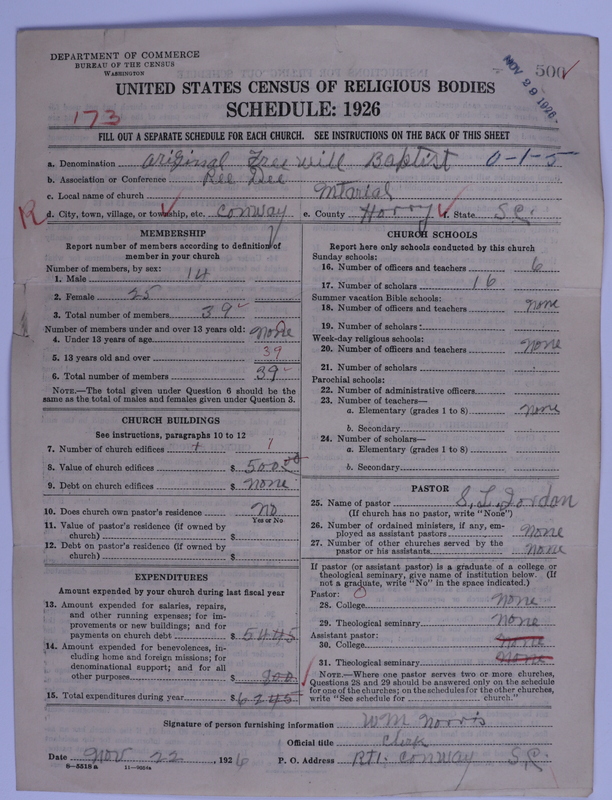 DEPARTMENT OF COMMERCE
BUREAU OF THE CENSUS
WASHINGTON
NOV 29 1926
500
UNITED STATES CENSUS OF RELIGIOUS BODIES
SCHEDULE: 1926
173
FILL OUT A SEPARATE SCHEDULE FOR EACH CHURCH. SEE INSTRUCTIONS ON THE BACK OF THIS SHEET
a. Denomination original Free will Baptist 0-1-5
b. Association or Conference Pee Dee
c. Local name of church
R d. City, town, village, or township, etc. Conway e. County Horry f. State S.C.
MEMBERSHIP
Report number of members according to definition of
member in your church
Number of members, by sex:
1. Male 14
2. Female 25
3. Total number of members 39
Number of members under and over 13 years old:
4. Under 13 years of age none
5. 13 years old and over 39
6. Total number of members 39
NOTE.—The total given under Question 6 should be the
same as the total of males and females given under Question 3.
CHURCH BUILDINGS
See instructions, paragraphs 10 to 12
7. Number of church edifices 1
8. Value of church edifices $ 500.00
9. Debt on church edifices $ none
10. Does church own pastor's residence? no
Yes or No
11. Value of pastor's residence (if owned by
church) $
12. Debt on pastor's residence (if owned by
church) $
EXPENDITURES
Amount expended by your church during last fiscal year
13. Amount expended for salaries, repairs,
and other running expenses; for im-
provements or new buildings; and for
payments on church debt $ 54.45
14. Amount expended for benevolences, in-
cluding home and foreign missions; for
denominational support; and for all
other purposes $ 8.00
15. Total expenditures during year $ 62.45
CHURCH SCHOOLS
Report here only schools conducted by this church
Sunday schools:
16. Number of officers and teachers 6
17. Number of scholars 16
Summer vacation Bible schools:
18. Number of officers and teachers none
19. Number of scholars
Week-day religious schools:
20. Number of officers and teachers none
21. Number of scholars
Parochial schools:
22. Number of administrative officers
23. Number of teachers—
a. Elementary (grades 1 to 8) none
b. Secondary
24. Number of scholars—
a. Elementary (grades 1 to 8)
b. Secondary
PASTOR
25. Name of pastor S. L. Jordan
(If church has no pastor, write "None")
26. Number of ordained ministers, if any, em-
ployed as assistant pastors none
27. Number of other churches served by the
pastor or his assistants none
If pastor (or assistant pastor) is a graduate of a college or
theological seminary, give name of institution below. (If
not a graduate, write "No" in the space indicated.)
Pastor:
28. College none
29. Theological seminary none
Assistant pastor:
30. College none
31. Theological seminary none
NOTE.—Where one pastor serves two or more churches,
Questions 28 and 29 should be answered only on the schedule
for one of the churches; on the schedules for the other churches,
write "See schedule for church."
Signature of person furnishing information Wm Norris
Official title Clerk
Date Nov 22, 1926 P. O. Address Rt 1. Conway S.C.
8-5518 a